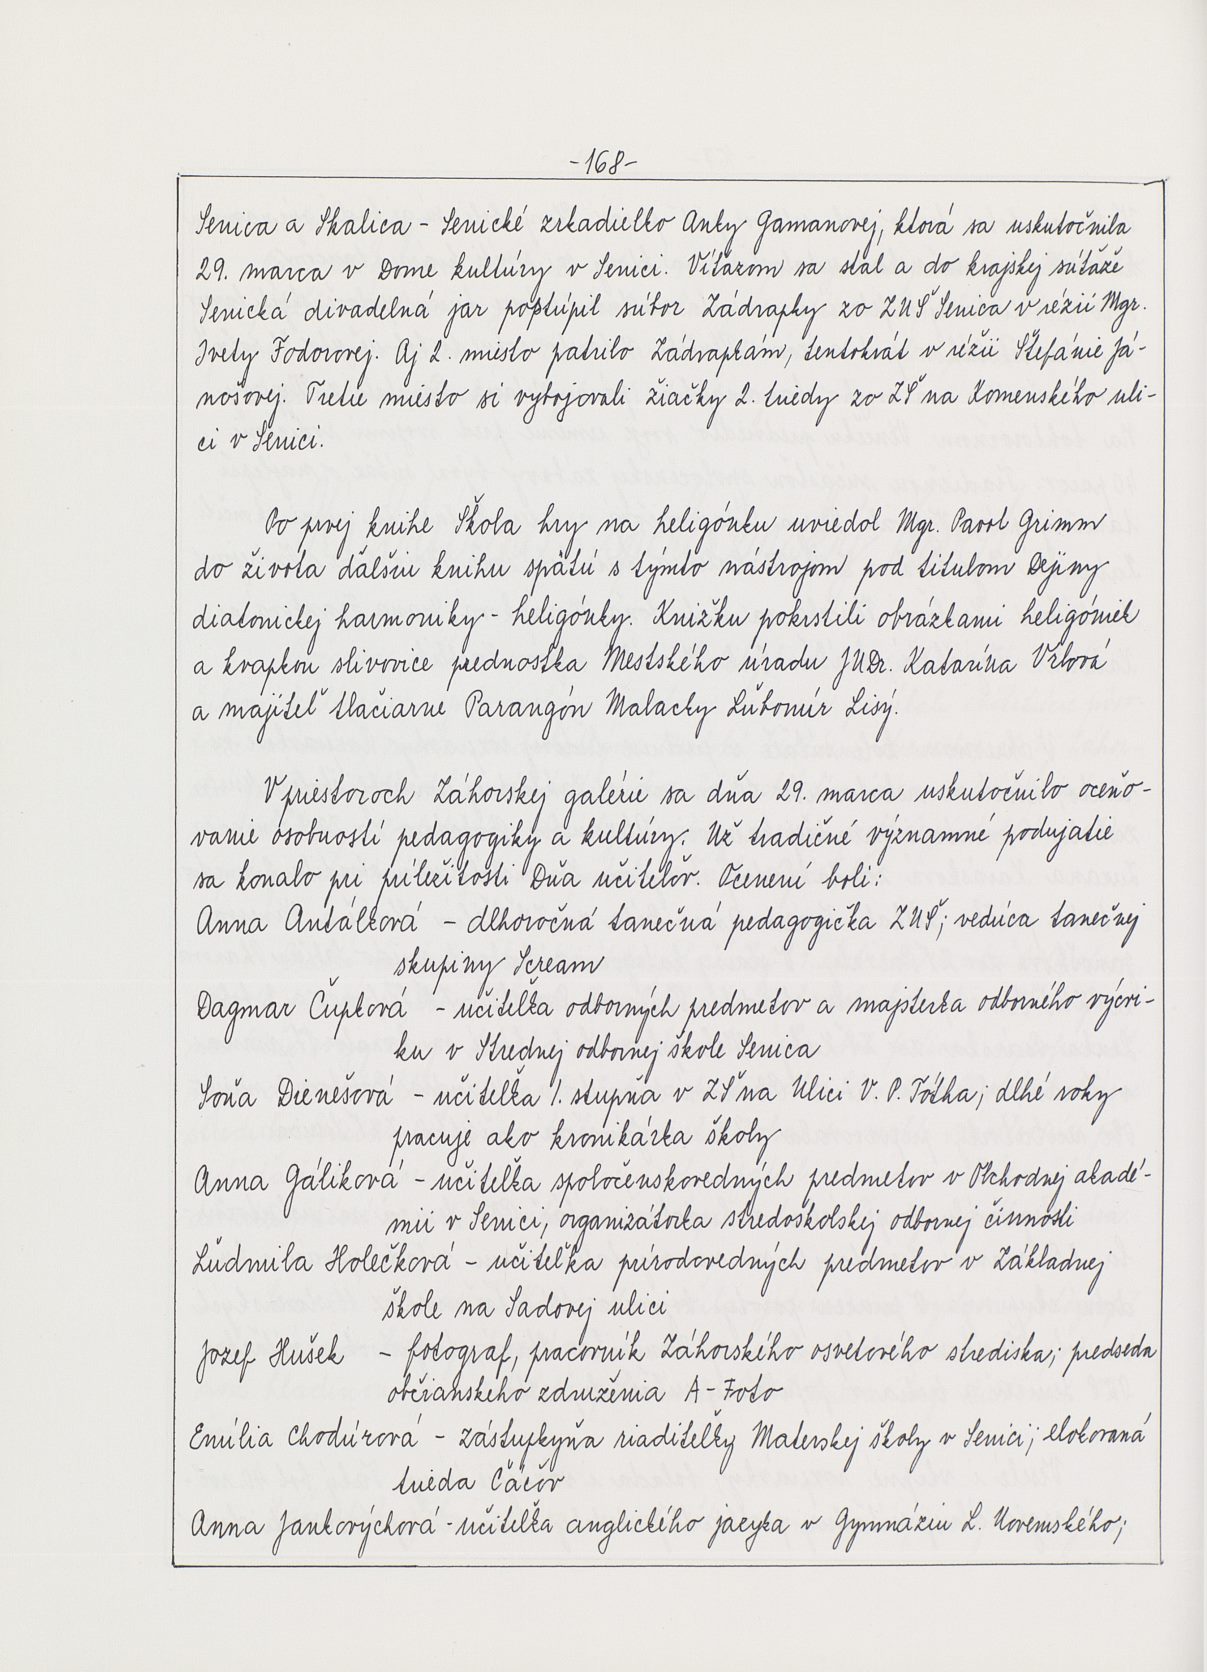 -168-
Senica a Skalica - Senické zrkadielko Anky Gamanovej, ktorá sa uskutočnila
29. marca v Dome kultúry v Senici. Víťazom sa stal a do krajskej súťaže
Senická divadelná jar postúpil súbor Zádrapky zo ZUŠ Senica v réžii Mgr.
Ivety Fodorovej. Aj 2. miesto patrilo Zádrapkám, tentokrát v réžii Štefánie Já-
nošovej. Tretie miesto si vybojovali žiačky 2. triedy zo ZŠ na Komenského uli-
ci v Senici.
Po prvej knihe Škola hry na heligónku uviedol Mgr. Pavol Grimm
do života ďalšiu knihu spätú s týmto nástrojom pod titulom Dejiny
diatonickej harmoniky - heligónky. Knižku pokrstili obrázkami heligóniek
a kvapkou slivovice prednostka Mestského úradu JUDr. Katarína Vrlová
a majiteľ tlačiarne Parangón Malacky Ľubomír Lisý.
V priestoroch Záhorskej galérie sa dňa 29. marca uskutočnilo oceňo-
vanie osobností pedagogiky a kultúry. Už tradičné významné podujatie
sa konalo pri príležitosti Dňa učiteľov. Ocenení boli:
Anna Antálková - dlhoročná tanečná pedagogička ZUŠ; vedúca tanečnej
skupiny Scream
Dagmar Čupková - učiteľka odborných predmetov a majsterka odborného výcvi-
ku v Strednej odbornej škole Senica
Soňa Dienešová - učiteľka 1. stupňa v ZŠ na Ulici V. P. Tótha; dlhé roky
pracuje ako kronikárka školy
Anna Gáliková - učiteľka spoločenskovedných predmetov v Obchodnej akadé-
mii v Senici, organizátorka stredoškolskej odbornej činnosti
Ľudmila Holečková - učiteľka prírodovedných predmetov v Základnej
škole na Sadovej ulici
Jozef Hušek - fotograf, pracovník Záhorského osvetového strediska; predseda
občianskeho združenia A-Foto
Emília Chodúrová - zástupkyňa riaditeľky Materskej školy v Senici; elokovaná
trieda Čáčov
Anna Jankovýchová - učiteľka anglického jazyka v Gymnáziu L. Novomského;